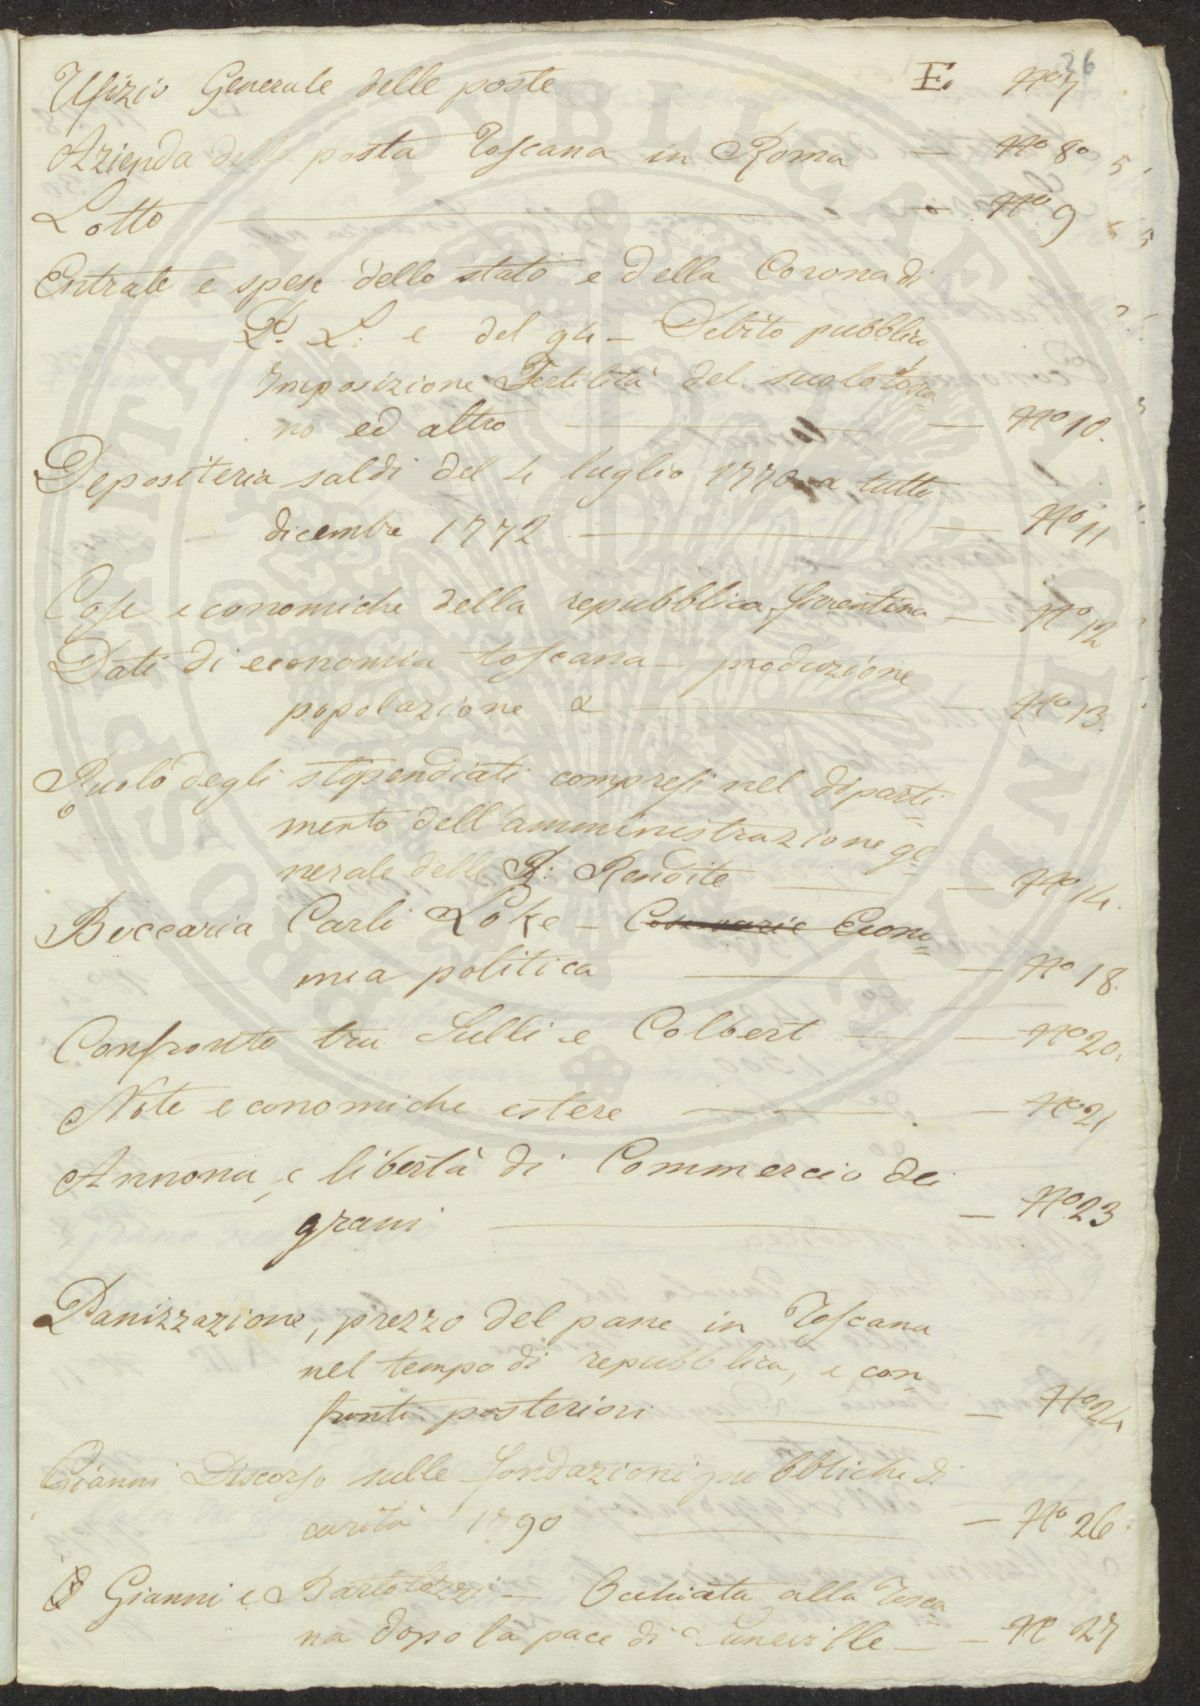 26
Ufizio Generale delle poste E. No 7
Azienda della posta Toscana in Roma — No 8o
Lotto — No 9
Entrate e spese dello stato e della Corona di
P. L: e del 94 — Debito pubblico
Imposizione Fertilità del suolo tosca=
no ed altro — No 10.
Depositeria saldi del 4 luglio 1770 a tutto
dicembre 1772 — No 11
Cose economiche della repubblica fiorentina — No 12
Dati di economia toscana — produzione
popolazione & — No 13.
Ruolo degli stipendiati compresi nel diparti=
mento dell'amministrazione ge=
nerale delle R: Rendite — No 14.
Beccaria Carli Loke — Cose varie Econo=
mia politica — No 18.
Confronto tra Sulli e Colbert — No 20.
Note economiche estere — No 21
Annona, e libertà di Commercio dei
grani — No 23
Panizzazione, prezzo del pane in Toscana
nel tempo di repubblica, e con=
fronti posteriori — No 24
Gianni Discorso sulle fondazioni pubbliche di
carità 1790 — No 26.
Gianni e Bartolozzi — Occhiata alla Tosca=
na dopo la pace di Luneville — No 27
PROSPERITATI PUBLICAE AUGENDAE